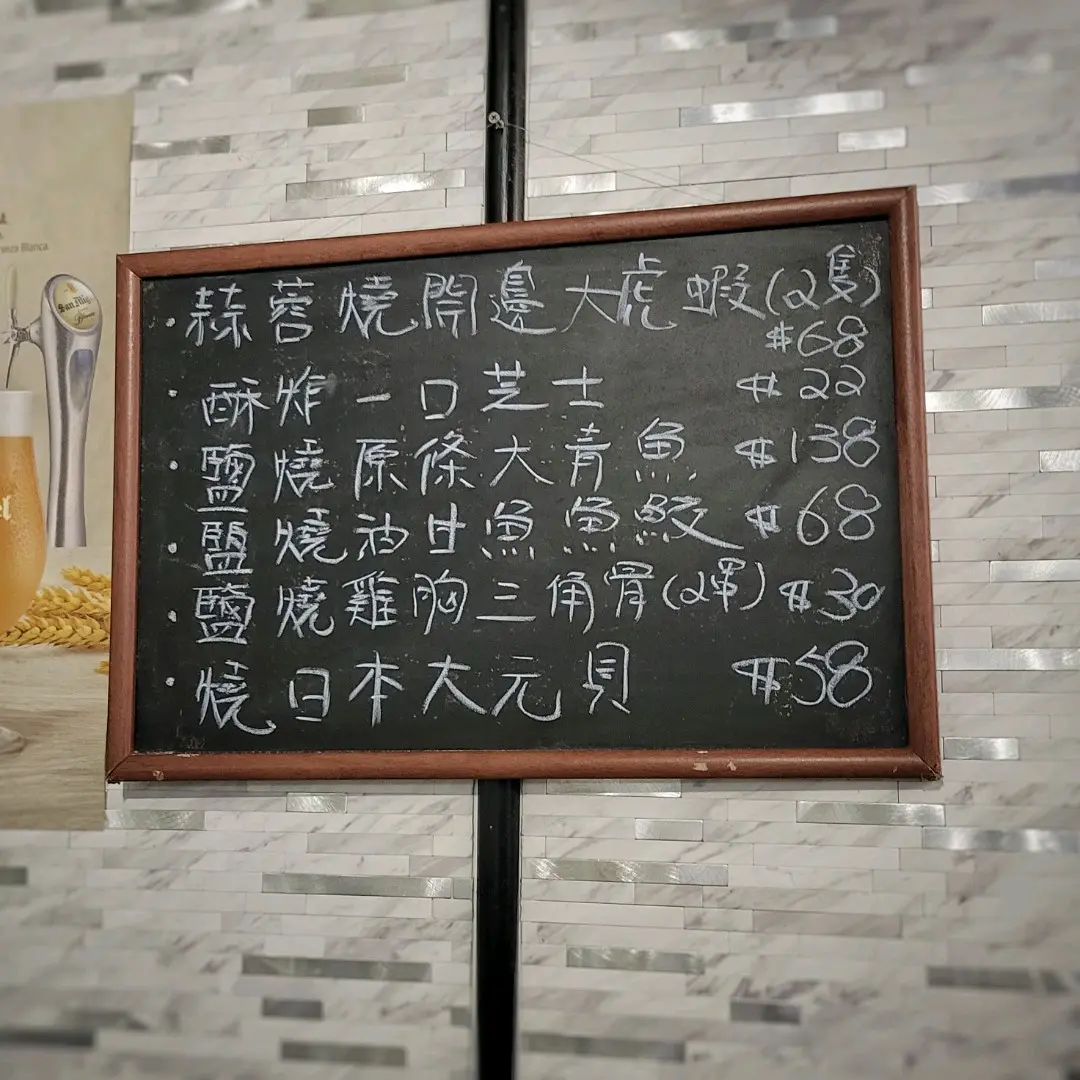 erveza Blanca
San Mig
· 蒜蓉燒開邊大虎蝦(2隻)
$68
· 酥炸一口芝士 $22
· 鹽燒原條大青魚 $138
· 鹽燒油甘魚魚鮫 $68
· 鹽燒雞胸三角骨(2串) $30
· 燒日本大元貝 $58